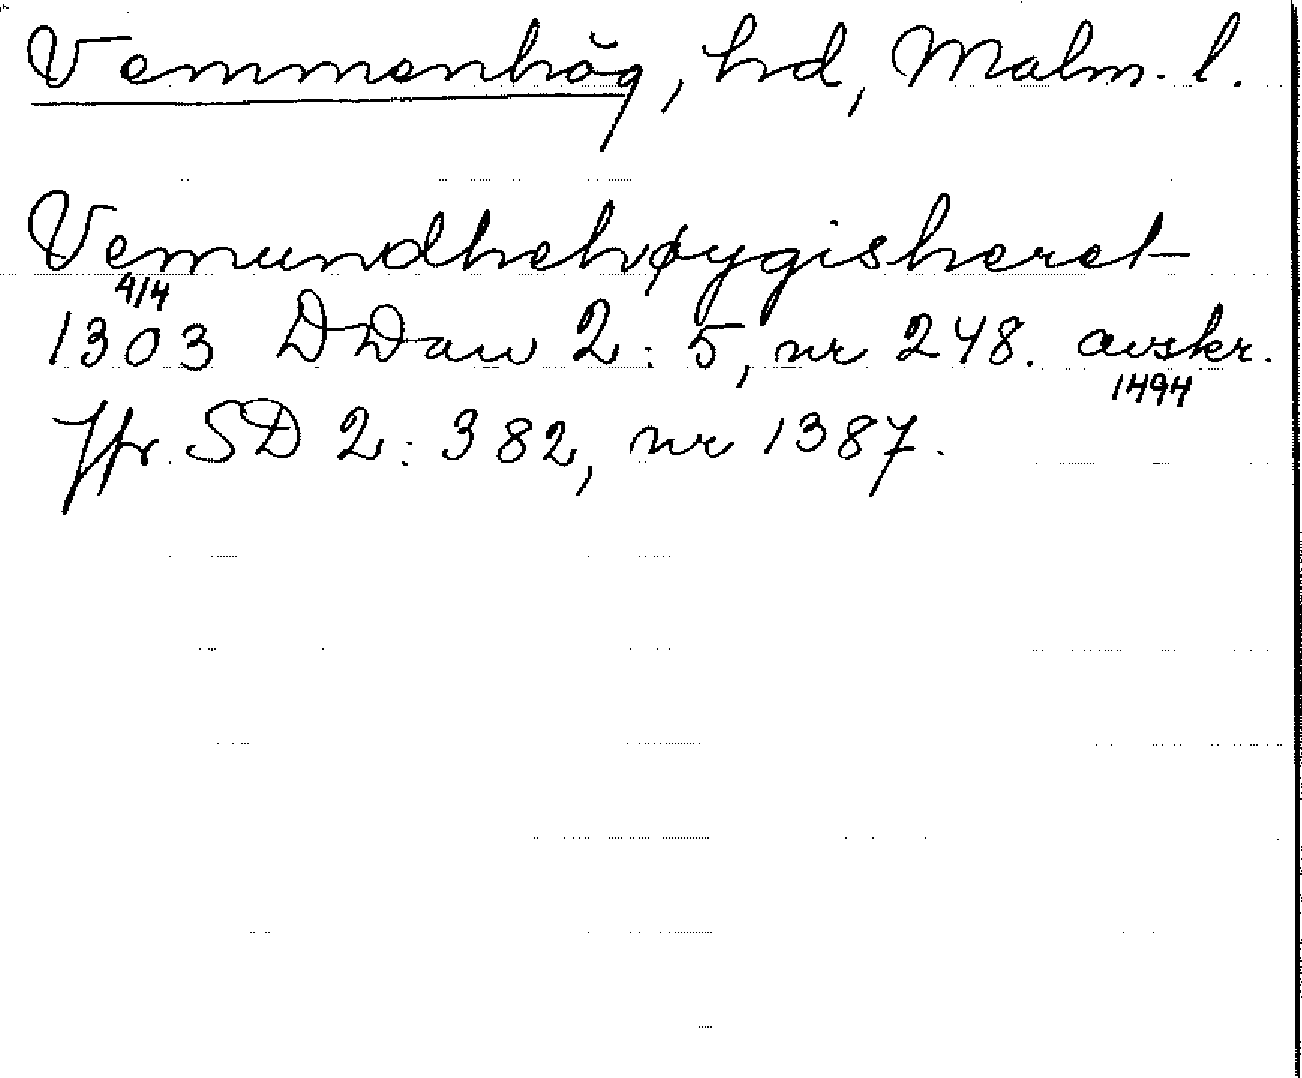 Vemmenhög, hd, Malm. l.
Vemundhehvøygisheret
4/4
1303 DDan 2:5, nr 248. avskr.
1494
Jfr. SD 2:382, nr 1387.